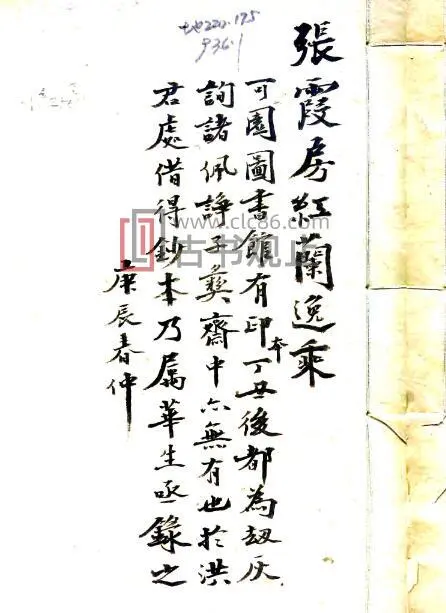 張霞房紅蘭逸乘
可園圖書館有印本丁丑後都為劫灰
詢諸佩諍子彝齋中亦無有也於洪
君處借得鈔本乃屬華生亟錄之
庚辰春仲
地220.175
936.1
www.clc86.com
古书规正